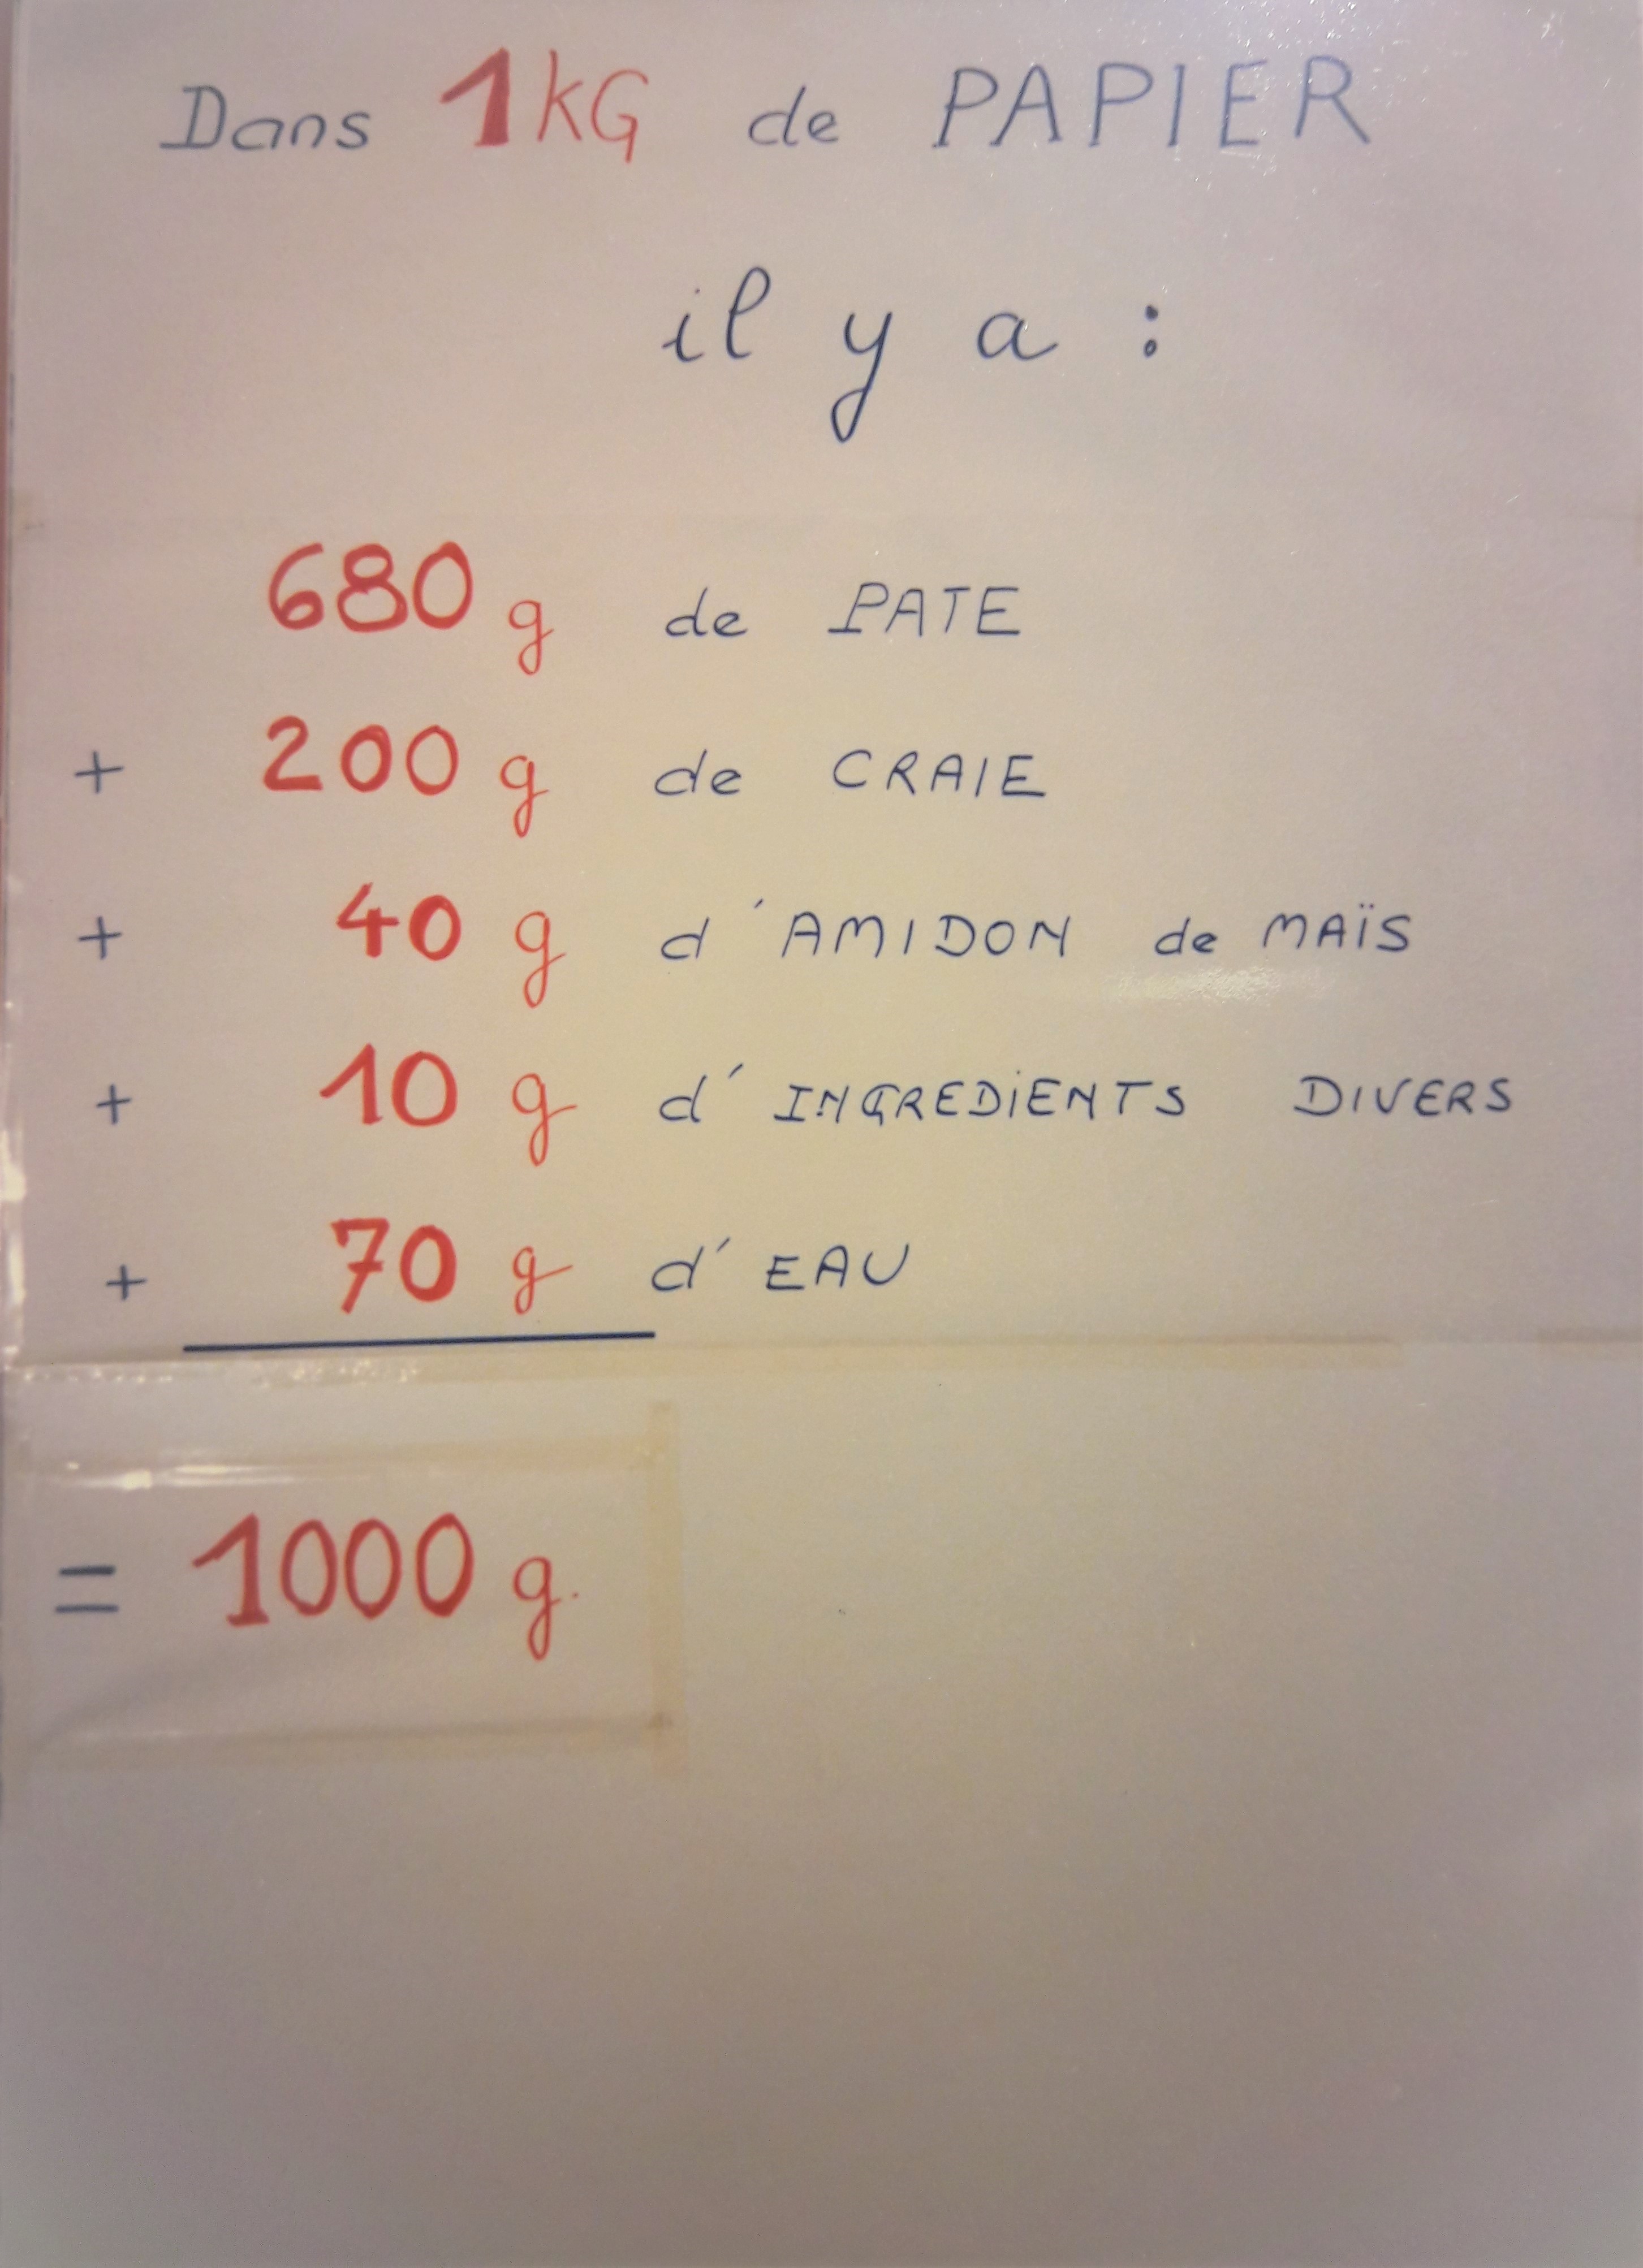 Dans 1kG de PAPIER
il y a :
680 g de PATE
+ 200 g de CRAIE
+ 40 g d'AMIDON de MAÏS
+ 10 g d'INGREDiENTS DIVERS
+ 70 g d'EAU
= 1000 g.